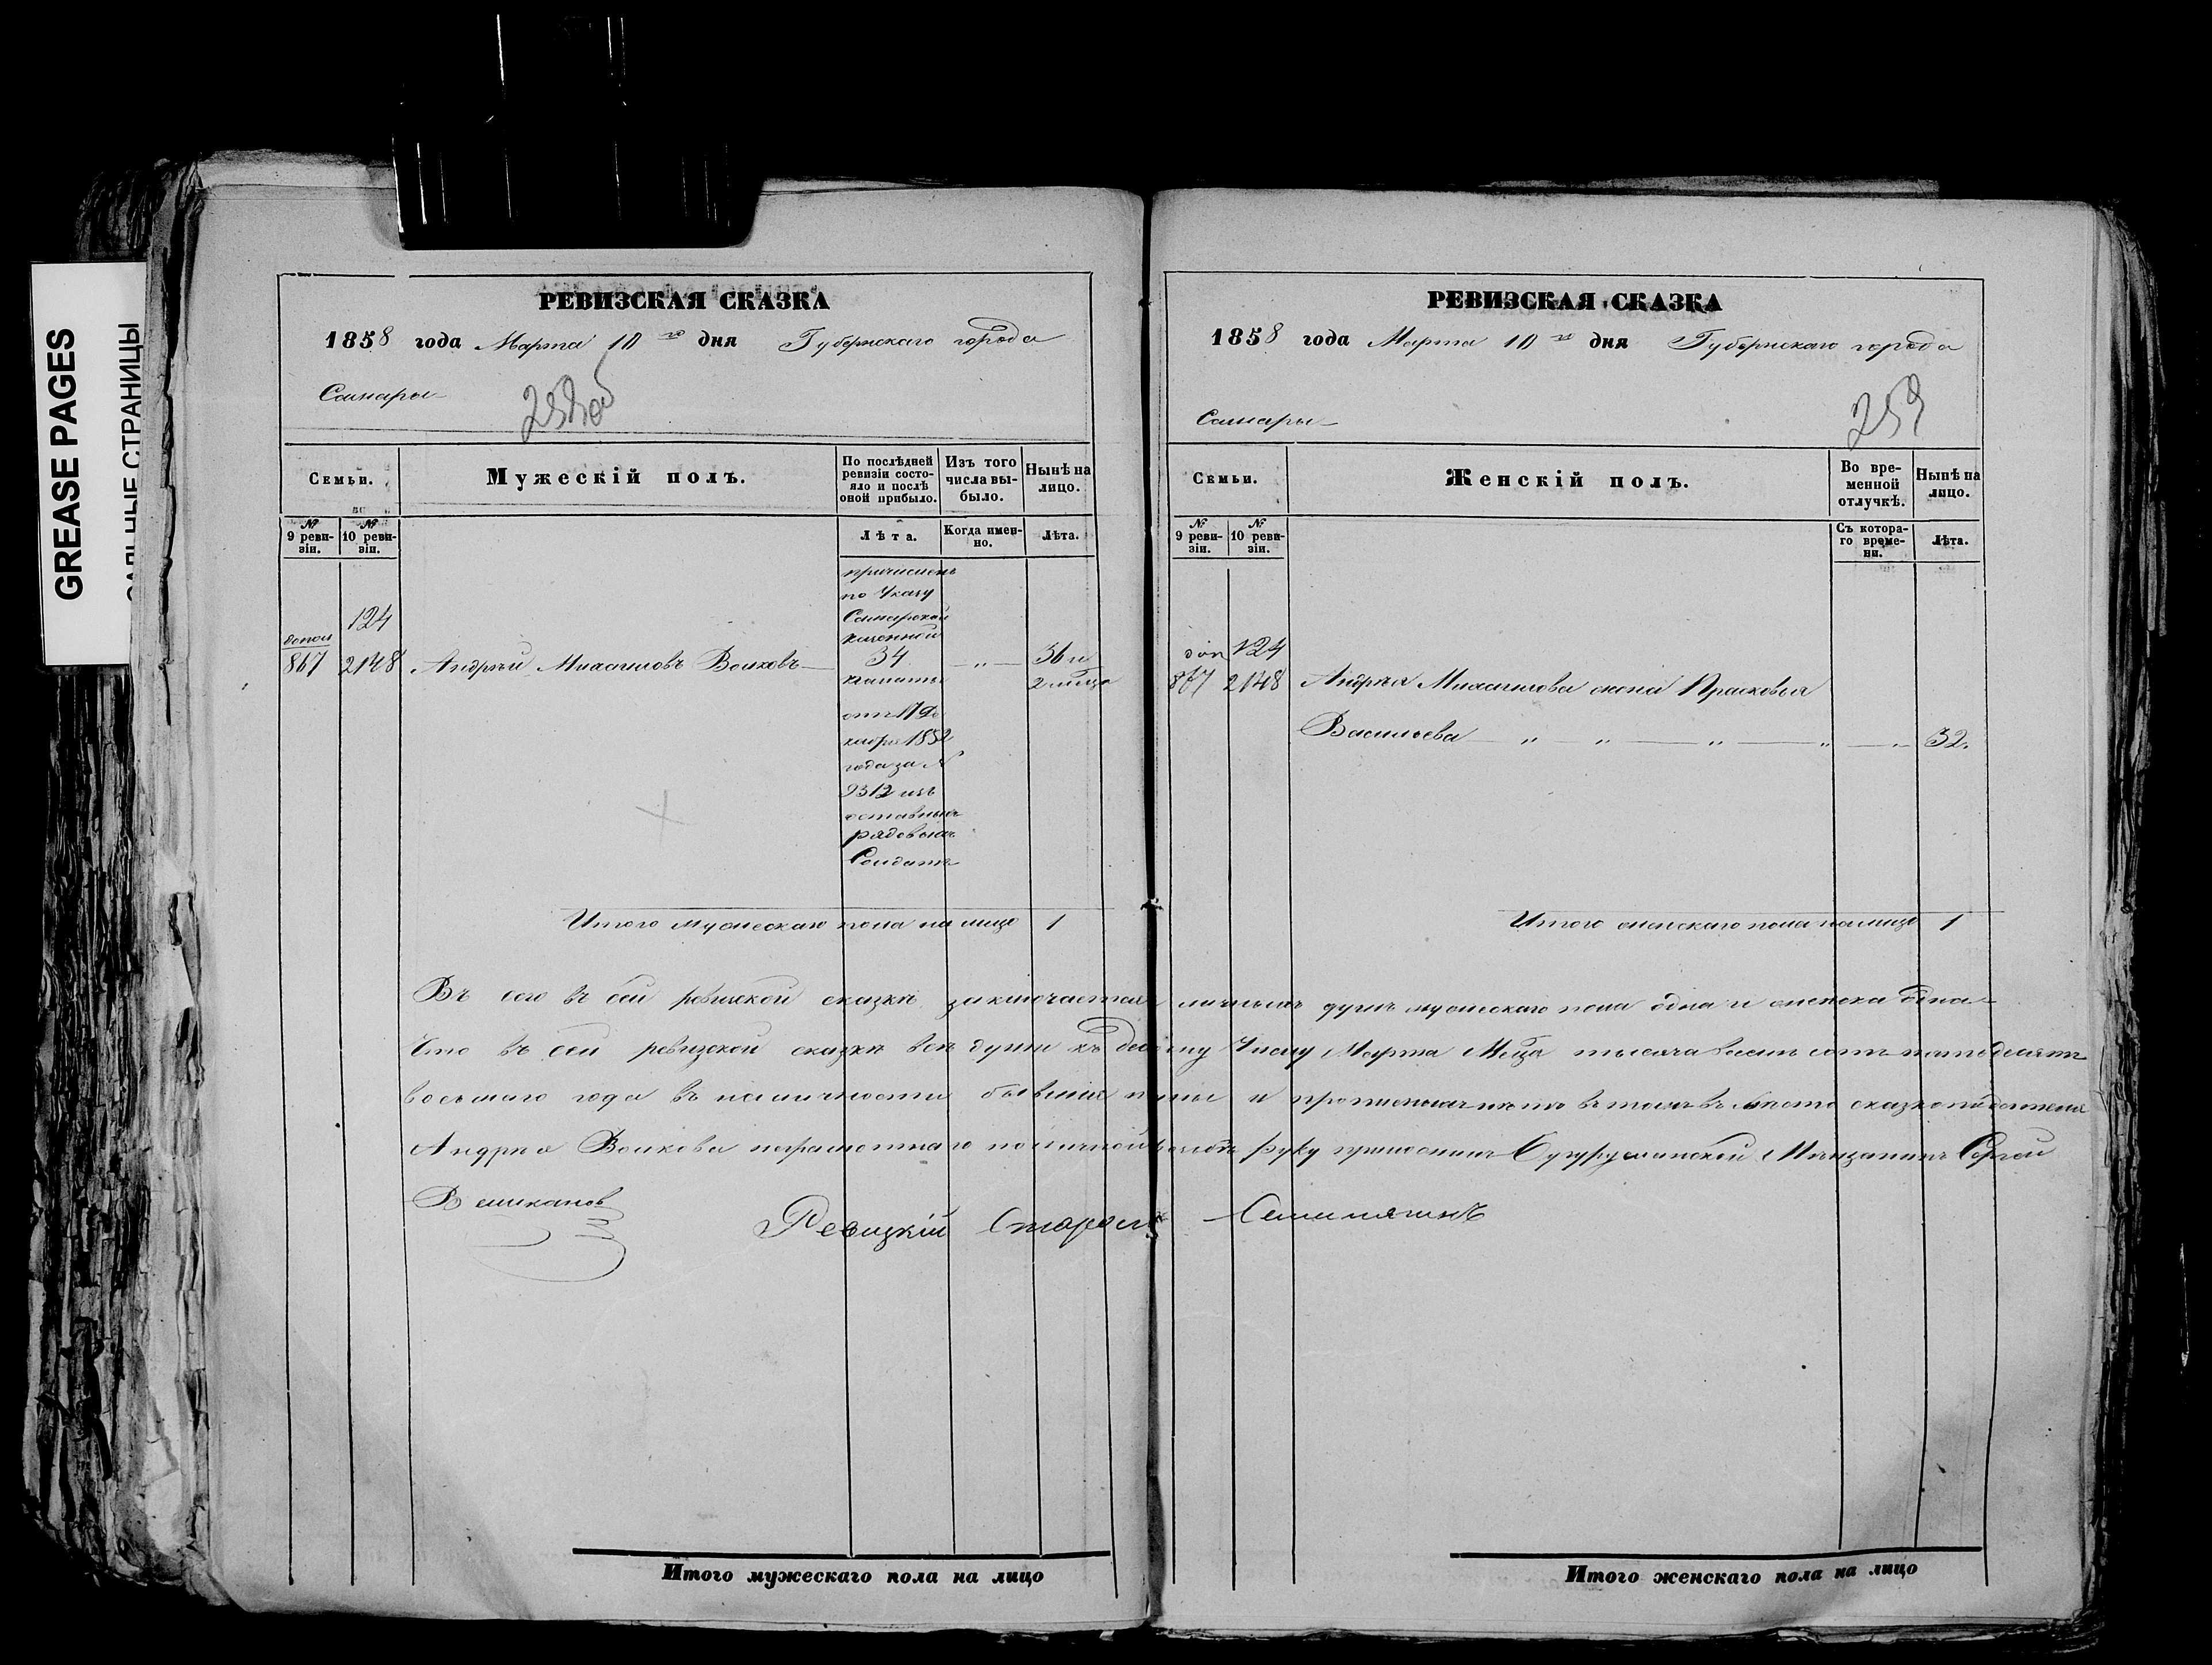 GREASE PAGES
САЛЬНЫЕ СТРАНИЦЫ
РЕВИЗСКАЯ СКАЗКА
1858 года Марта 10 го дня Губернскаго города
Самары
258об
Семьи.
Мужескій полъ.
По послѣдней ревизіи состояло и послѣ оной прибыло.
Изъ того числа выбыло.
Нынѣ на лицо.
№ 9 ревизіи.
№ 10 ревизіи.
Лѣта.
Когда именно.
Лѣта.
причисленъ
по Указу
Самарской
124
казенной
допол
867 2148 Андрей Михайловъ Волковъ 34 — „ — 36 и
палаты
2 мѣца
отъ 17 Де
кабря 1852
года за №
9312 изъ
отставныхъ
рядовыхъ
Солдатъ
Итого мужескаго пола на лицо 1
РЕВИЗСКАЯ СКАЗКА
1858 года Марта 10 го дня Губернскаго города
Самары
259
Семьи.
Женскій полъ.
Во временной отлучкѣ.
Нынѣ на лицо.
№ 9 ревизіи.
№ 10 ревизіи.
Съ котораго времени.
Лѣта.
доп 124
867 2148 Андрея Михайлова жена Прасковья
Васильева — „ — „ — „ — „ — „ — 32.
Итого женскаго пола на лицо 1
Въ сей ревизской сказкѣ заключается личныхъ душъ мужескаго пола одна и женска одна
Что въ сей ревизской сказкѣ всѣ души къ десятому Числу Марта Мѣца тысяча восемь сотъ пятьдесятъ
восьмаго года въ наличности бывшія и прописныхъ нѣтъ въ томъ въ мѣсто сказкоподателя
Андрея Волкова неграмотнаго по личной прозбѣ руку приложилъ Бугурусланской Мѣщанинъ Сергей
Великановъ
Ревизкій Староста
Итого мужескаго пола на лицо
Итого женскаго пола на лицо